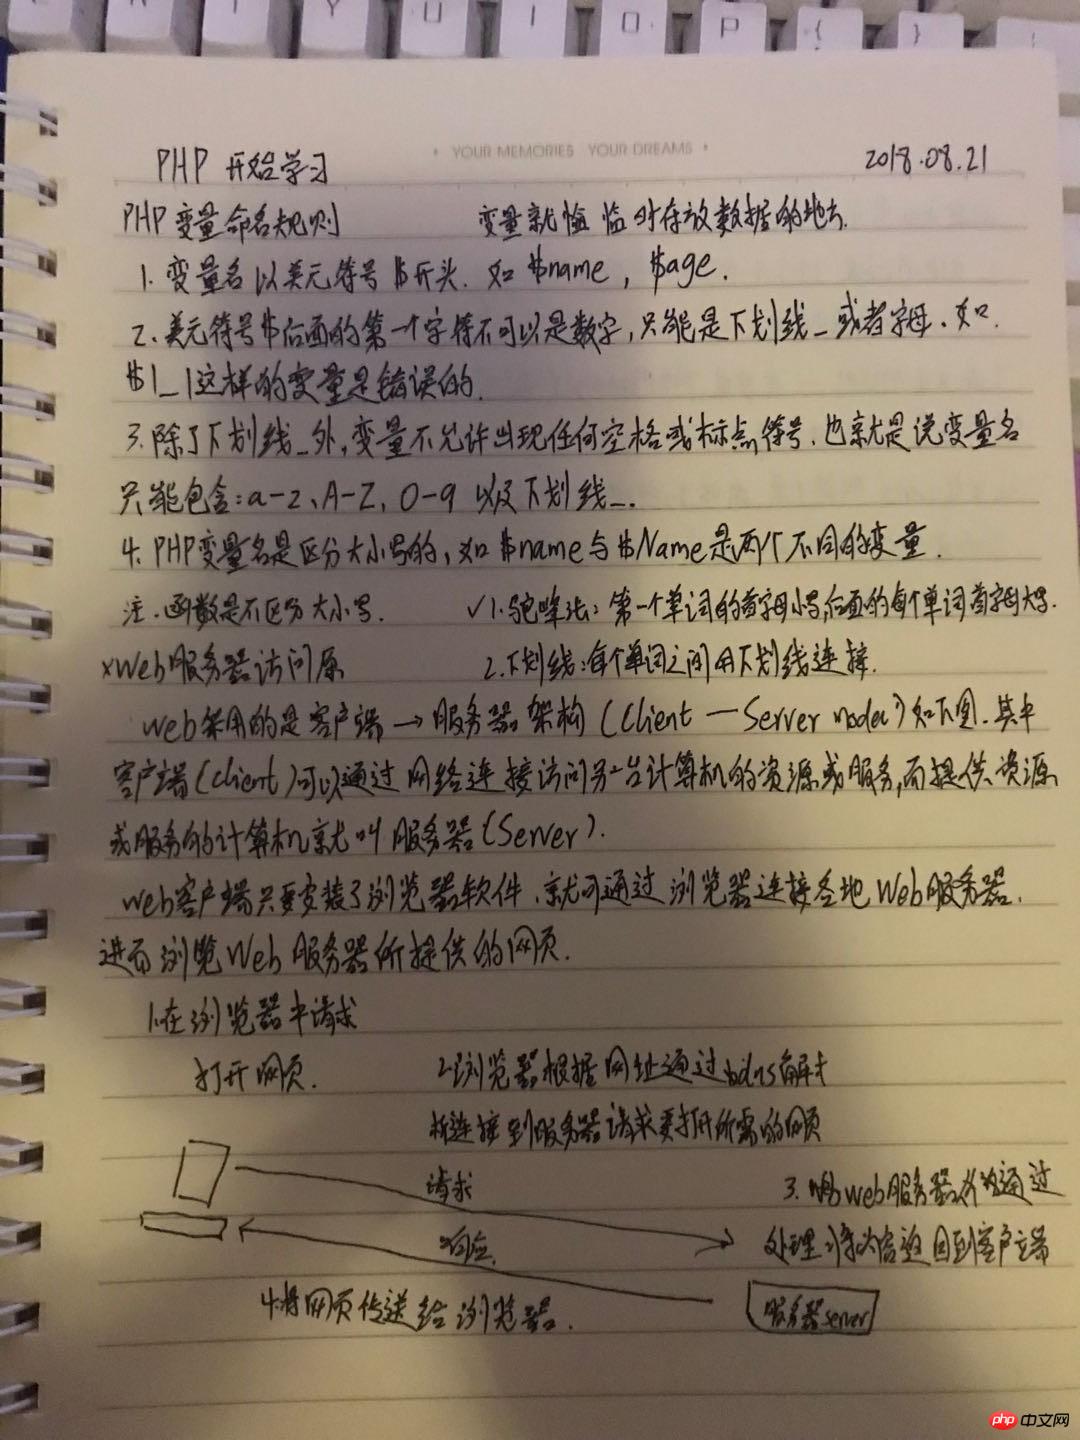 Y U I O P { }
YOUR MEMORIES YOUR DREAMS
PHP 开始学习 2018.08.21
PHP变量命名规则 变量就 临时存放数据的地方.
1. 变量名以美元符号$开头. 如 $name, $age.
2. 美元符号$后面的第一个字符不可以是数字,只能是下划线_或者字母.如.
$1_1这样的变量是错误的.
3.除了下划线_外,变量不允许出现任何空格或标点符号.也就是说变量名
只能包含:a-z、A-Z、0-9 以及下划线_.
4. PHP变量名是区分大小写的,如$name与$Name是两个不同的变量.
注.函数是不区分大小写. √1.驼峰法:第一个单词的首字母小写,后面的每个单词首字母大写.
×Web服务器访问原 2.下划线:每个单词之间用下划线连接.
web采用的是客户端→服务器架构(Client—Server model)如下图.其中
客户端(client)可以通过网络连接访问另一台计算机的资源或服务,而提供资源
或服务的计算机就叫服务器(Server).
web客户端只要安装了浏览器软件.就可通过浏览器连接各地Web服务器.
进而浏览Web服务器所提供的网页.
1.在浏览器中请求
打开网页. 2.浏览器根据网址通过 dns解
析连接到服务器请求要打开所需的网页
请求 3. web服务器 通过
响应. 处理 将 信 返回到客户端
4.将网页传送给浏览器. 服务器server
php 中文网